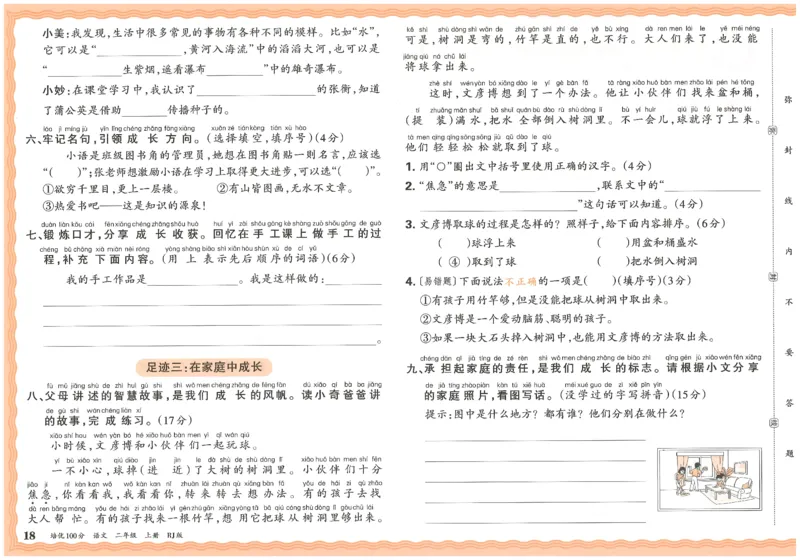 小美:我发现,生活中很多常见的事物有各种不同的模样。比如“水”,
它可以是“____________,黄河入海流”中的滔滔大河,也可以是
“____________生紫烟,遥看瀑布____________”中的雄奇瀑布。
小妙:在课堂学习中,我认识了____________________的张衡,知道
了蒲公英是借助________传播种子的。
六、牢记名句,引领成长方向。(选择填空,填序号)(4分)
小语是班级图书角的管理员,她想在图书角贴一则名言,应该选
“(    )”;张老师想激励小语在学习上取得更大进步,可以选“(    )”。
①欲穷千里目,更上一层楼。 ②有山皆图画,无水不文章。
③热爱书吧——这是知识的源泉!
七、锻炼口才,分享成长收获。回忆在手工课上做手工的过
程,补充下面内容。(用上表示先后顺序的词语)(6分)
我的手工作品是____________。我是这样做的:____________
____________________________________________
____________________________________________
____________________________________________。
足迹三:在家庭中成长
八、父母讲述的智慧故事,是我们成长的风帆。读小奇爸爸讲
的故事,完成练习。(17分)
小时候,文彦博和小伙伴们一起玩球。
一不小心,球掉(进 近)了大树的树洞里。小伙伴们十分
焦急,你看看我,我看看你,转来转去想办法。有的孩子去找
大人帮忙。有的孩子找来一根竹竿,想用它把球从树洞里够出来。
18 培优100分 语文 二年级 上册 RJ版
可是,树洞是弯的,竹竿是直的,也不行。大人们来了,也没能
将球拿出来。
这时,文彦博想到了一个办法。他让小伙伴们找来盆和桶,
(提 装)满水,把水全部倒入树洞里。不一会儿,球就浮了上来。
他们轻轻松松就取到了球。
1. 用“○”圈出文中括号里使用正确的汉字。(4分)
2. “焦急”的意思是________________,联系文中的“________________
____________________________”这句话可以知道。(4分)
3. 文彦博取球的过程是怎样的?照样子,给下面内容排序。(6分)
(    )球浮上来 (    )用盆和桶盛水
( ④ )取到了球 (    )把水倒入树洞
4. [易错题]下面说法不正确的一项是(    )(填序号)(3分)
①有孩子用竹竿够,但是没能把球从树洞中取出来。
②文彦博是一个爱动脑筋、聪明的孩子。
③如果一块大石头掉入树洞中,也能用文彦博的方法取出来。
九、承担起家庭的责任,是我们成长的标志。请根据小文分享
的家庭照片,看图写话。(没学过的字写拼音)(15分)
提示:图中是什么地方?都有谁?他们分别在做什么?
弥
封
线
内
不
要
答
题